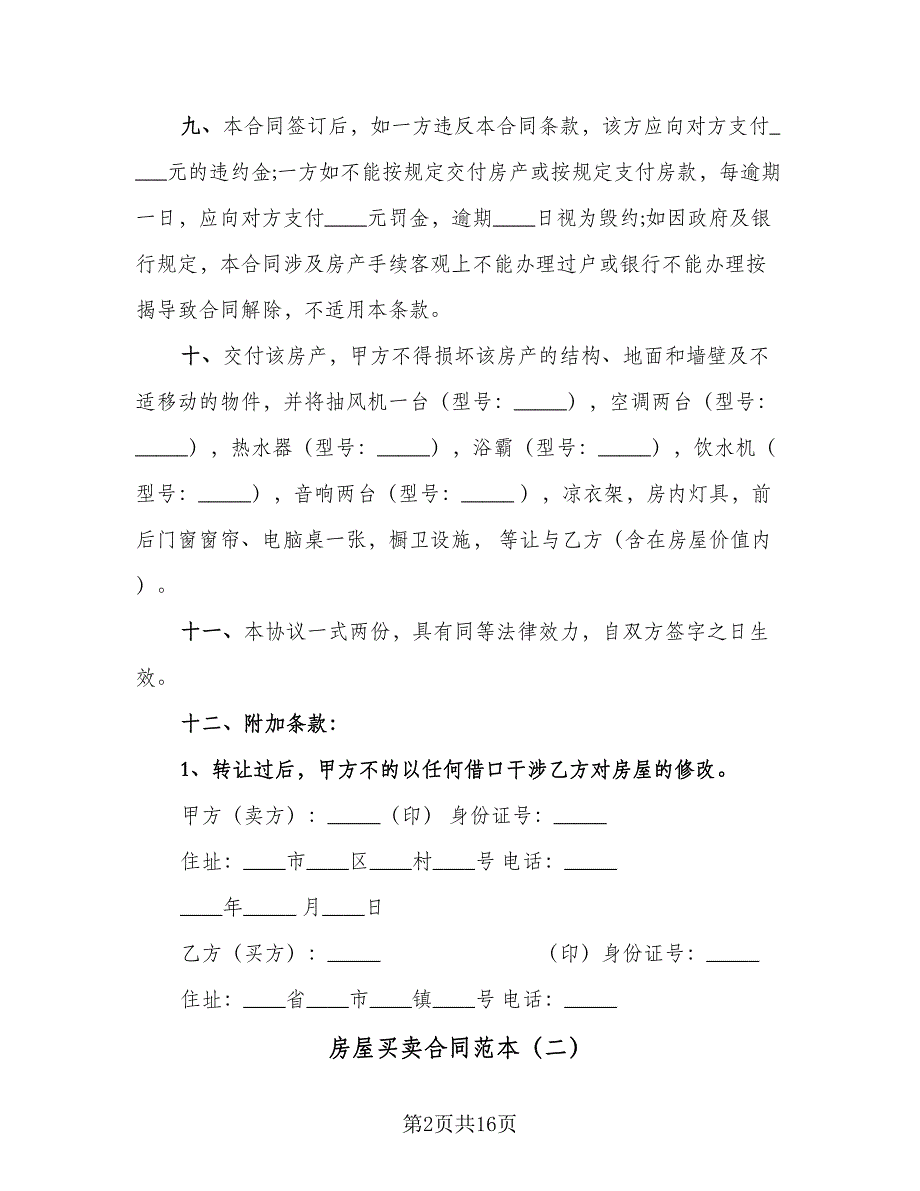 九、本合同签订后，如一方违反本合同条款，该方应向对方支付_
___元的违约金;一方如不能按规定交付房产或按规定支付房款，每逾期
一日，应向对方支付____元罚金，逾期____日视为毁约;如因政府及银
行规定，本合同涉及房产手续客观上不能办理过户或银行不能办理按
揭导致合同解除，不适用本条款。
十、交付该房产，甲方不得损坏该房产的结构、地面和墙壁及不
适移动的物件，并将抽风机一台（型号：_____），空调两台（型号：
_____），热水器（型号：_____），浴霸（型号：_____），饮水机（
型号：_____），音响两台（型号：_____ ），凉衣架，房内灯具，前
后门窗窗帘、电脑桌一张，橱卫设施， 等让与乙方（含在房屋价值内
）。
十一、本协议一式两份，具有同等法律效力，自双方签字之日生
效。
十二、附加条款：
1、转让过后，甲方不的以任何借口干涉乙方对房屋的修改。
甲方（卖方）：_____（印） 身份证号：_____
住址：____市____区____村____号 电话：_____
____年_____ 月____日
乙方（买方）：_____ （印）身份证号：_____
住址：____省____市____镇____号 电话：_____
房屋买卖合同范本（二）
第2页共16页